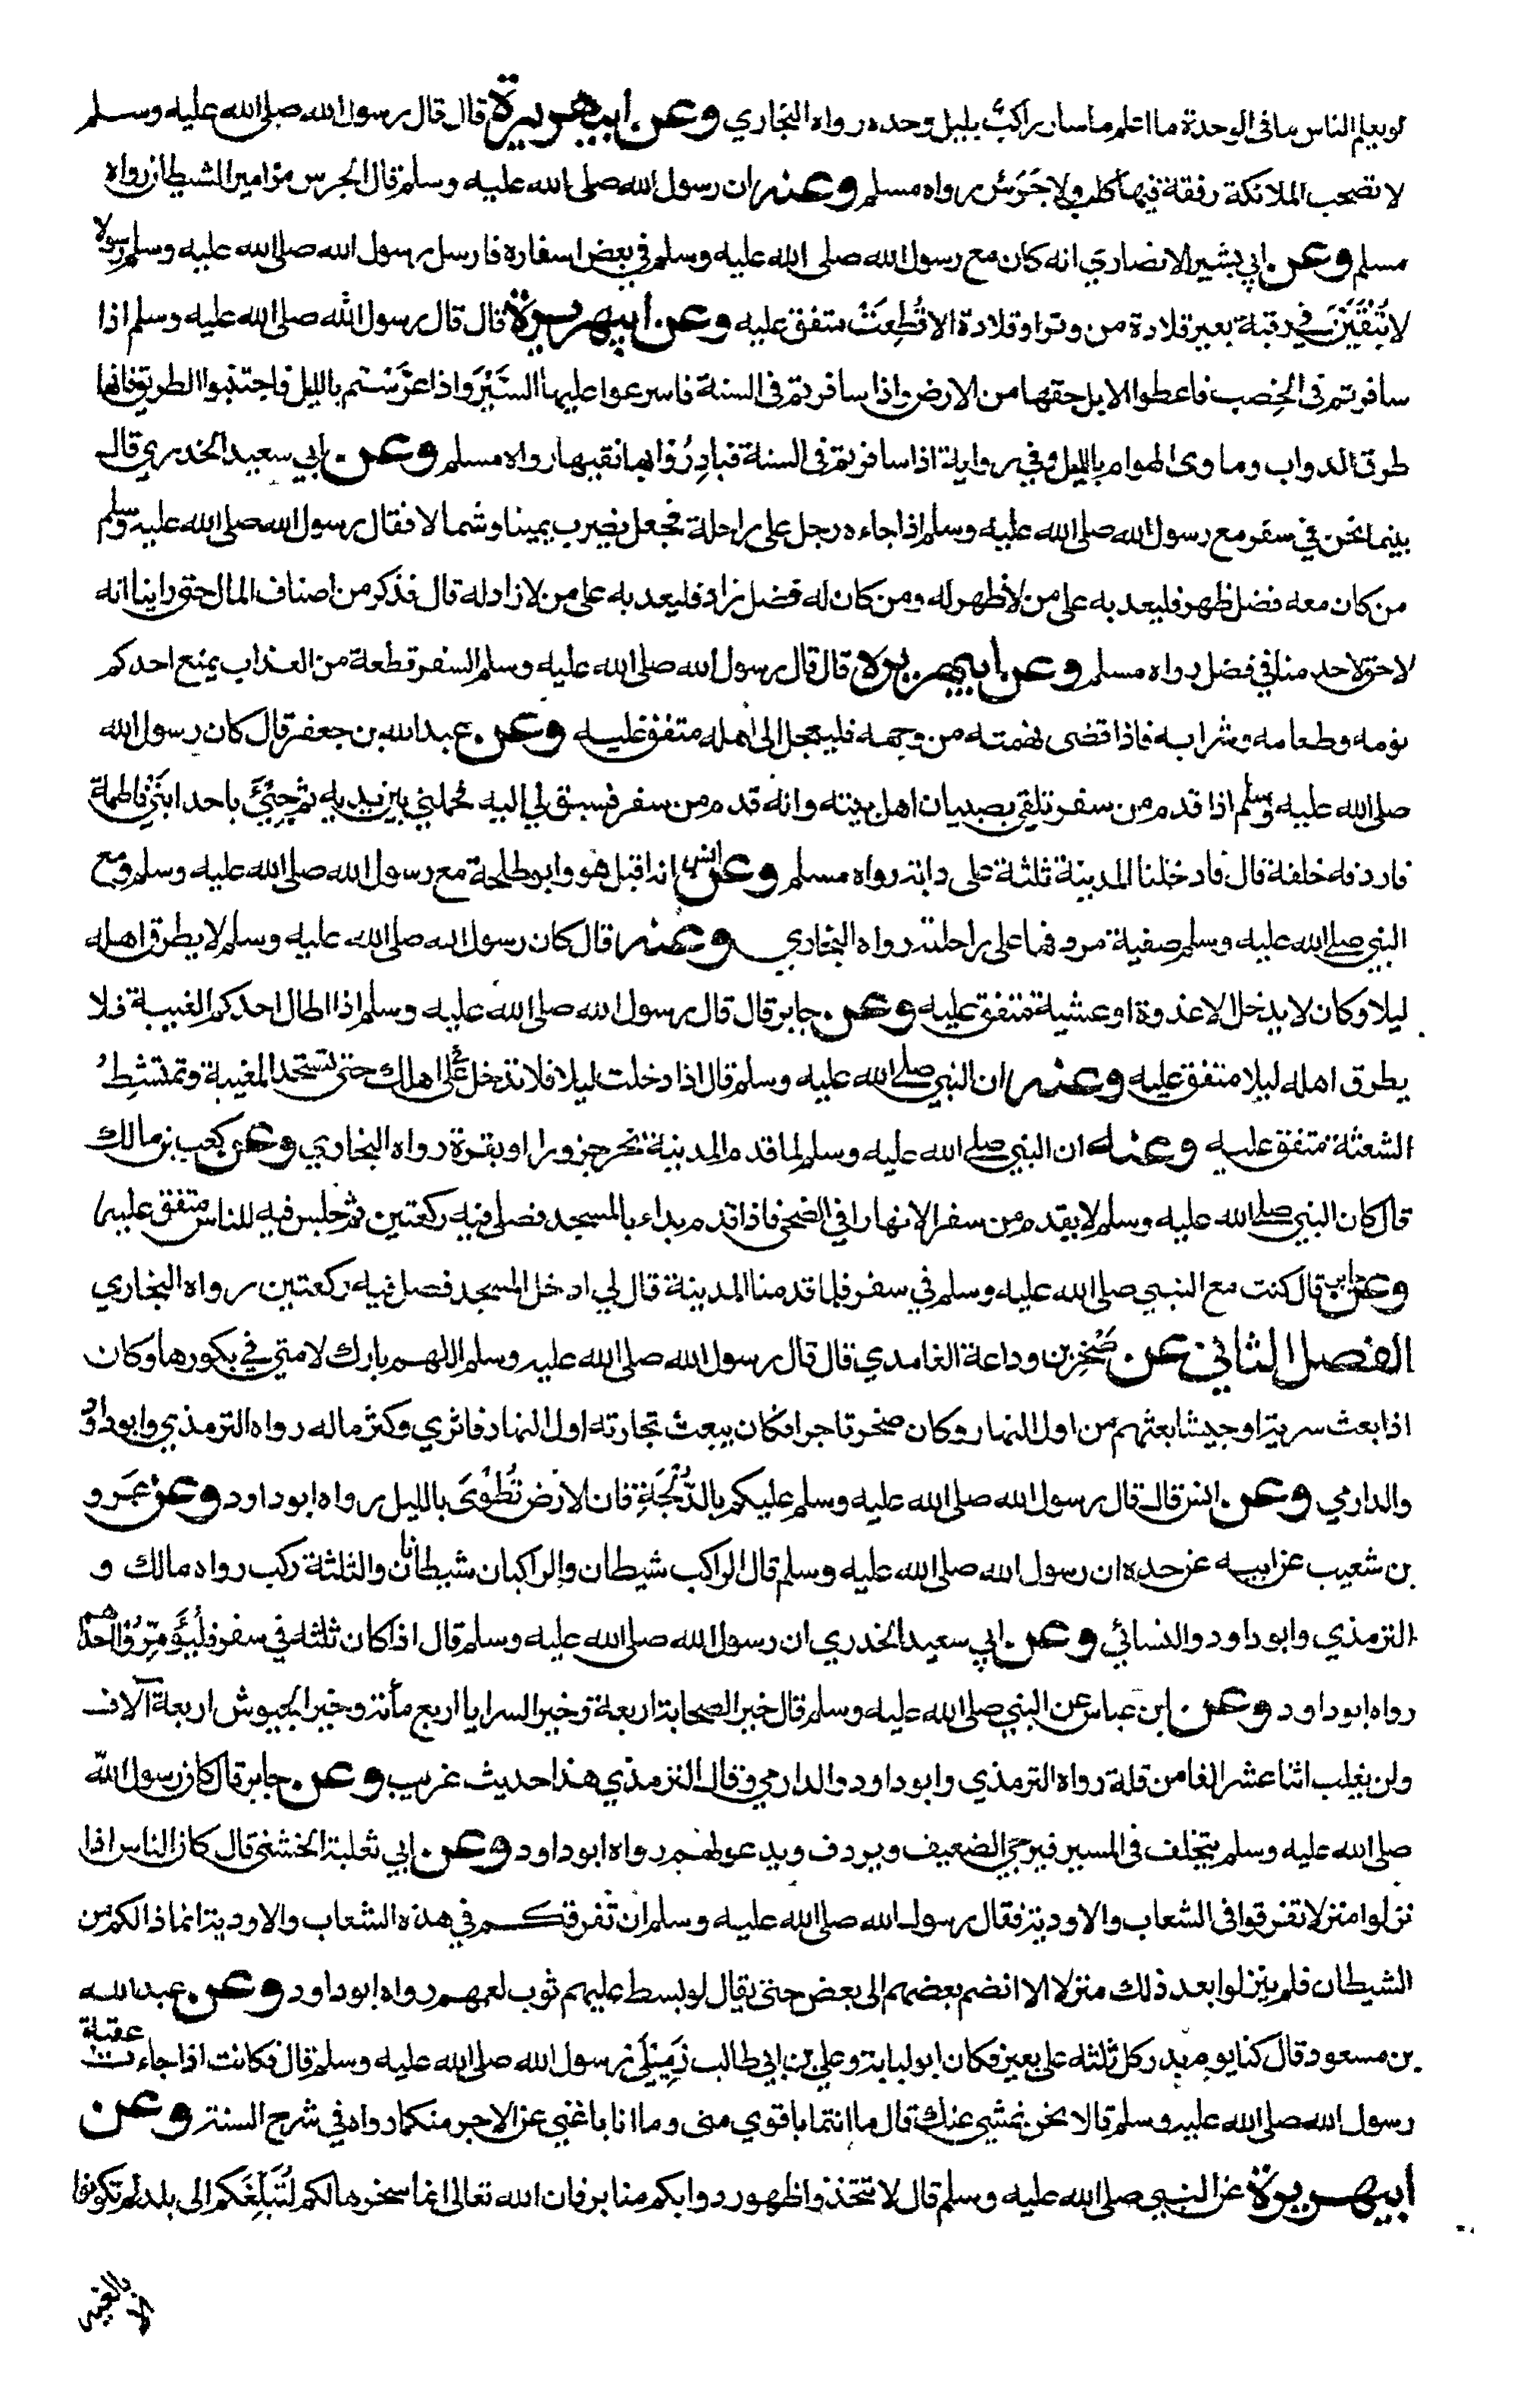 لو يعلم الناس ما في الوحدة ما اعلم ما سار راكب بليل وحده رواه البخاري وعن ابي هريرة قال قال رسول الله صلى الله عليه وسلم
لا تصحب الملائكة رفقة فيها كلب ولا جرس رواه مسلم وعنه ان رسول الله صلى الله عليه وسلم قال الجرس مزامير الشيطان رواه
مسلم وعن ابي بشير الانصاري انه كان مع رسول الله صلى الله عليه وسلم في بعض اسفاره فارسل رسول الله صلى الله عليه وسلم رسولا
لا تُبْقَيَنَّ في رقبة بعير قلادة من وتر او قلادة الا قُطِعَتْ متفق عليه وعن أبي هريرة قال قال رسول الله صلى الله عليه وسلم اذا
سافرتم فى الخِصب فاعطوا الابل حقها من الارض واذا سافرتم فى السنة فاسرعوا عليها السَّيْرَ واذا عَرَّسْتم بالليل فاجتنبوا الطريق فانها
طرق الدواب وماوى الهوام بالليل وفي رواية اذا سافرتم فى السنة فبادِرُوا بها نقيها رواه مسلم وعن ابي سعيد الخدري قال
بينما نحن في سفر مع رسول الله صلى الله عليه وسلم اذا جاءه رجل على راحلة فجعل يضرب يمينا وشمالا فقال رسول الله صلى الله عليه وسلم
من كان معه فضل ظهر فليعد به على من لا ظهر له ومن كان له فضل زاد فليعد به على من لا زاد له قال فذكر من اصناف المال حتى راينا انه
لا حق لاحد منا في فضل رواه مسلم وعن ابي هريرة قال قال رسول الله صلى الله عليه وسلم السفر قطعة من العذاب يمنع احدكم
نومه وطعامه وشرابه فاذا قضى نهمته من وجهه فليعجل الى اهله متفق عليه وعن عبد الله بن جعفر قال كان رسول الله
صلى الله عليه وسلم اذا قدم من سفر تلقي بصبيان اهل بيته وانه قدم من سفر فسبق لي اليه فحملني بين يديه ثم جِئَ باحد ابنَيْ فاطمة
فاردفه خلفه قال فادخلنا المدينة ثلثة على دابة رواه مسلم وعن انس انه اقبل هو وابو طلحة مع رسول الله صلى الله عليه وسلم ومع
النبي صلى الله عليه وسلم صفية مردفها على راحلته رواه البخاري وعنه قال كان رسول الله صلى الله عليه وسلم لا يطرق اهله
ليلا وكان لا يدخل الا غدوة او عشية متفق عليه وعن جابر قال قال رسول الله صلى الله عليه وسلم اذا اطال احدكم الغيبة فلا
يطرق اهله ليلا متفق عليه وعنه ان النبي صلى الله عليه وسلم قال اذا دخلت ليلا فلا تدخل على اهلك حتى تستحد المغيبة وتمتشط
الشعثة متفق عليه وعنه ان النبي صلى الله عليه وسلم لما قدم المدينة نحر جزورا او بقرة رواه البخاري وعن كعب بن مالك
قال كان النبي صلى الله عليه وسلم لا يقدم من سفر الا نهارا في الضحى فاذا قدم بداء بالمسجد فصلى فيه ركعتين ثم جلس فيه للناس متفق عليه
وعن جابر قال كنت مع النبي صلى الله عليه وسلم في سفر فلما قدمنا المدينة قال لي ادخل المسجد فصل فيه ركعتين رواه البخاري
الفصل الثاني عن صَخْر بن وداعة الغامدي قال قال رسول الله صلى الله عليه وسلم اللهم بارك لامتي في بكورها وكان
اذا بعث سرية او جيشا بعثهم من اول النهار وكان صخر تاجرا فكان يبعث تجارته اول النهار فاثري وكثر ماله رواه الترمذي وابو داود
والدارمي وعن انس قال قال رسول الله صلى الله عليه وسلم عليكم بالدُّلْجَةِ فان الارض تُطْوَى بالليل رواه ابو داود وعن عمرو
بن شعيب عن ابيه عن جده ان رسول الله صلى الله عليه وسلم قال الراكب شيطان والراكبان شيطانان والثلثة ركب رواه مالك و
الترمذي وابو داود والنسائي وعن ابي سعيد الخدري ان رسول الله صلى الله عليه وسلم قال اذا كان ثلثة في سفر فليُؤَمِّرُوا احدهم
رواه ابو داود وعن ابن عباس عن النبي صلى الله عليه وسلم قال خير الصحابة اربعة وخير السرايا اربع مأئة وخير الجيوش اربعة آلاف
ولن يغلب اثنا عشر الفا من قلة رواه الترمذي وابو داود والدارمي وقال الترمذي هذا حديث غريب وعن جابر قال كان رسول الله
صلى الله عليه وسلم يتخلف فى المسير فيزجي الضعيف ويردف ويدعو لهم رواه ابو داود وعن ابي ثعلبة الخشني قال كان الناس اذا
نزلوا منزلا تفرقوا فى الشعاب والاودية فقال رسول الله صلى الله عليه وسلم ان تفرقكم في هذه الشعاب والاودية انما ذالكم من
الشيطان فلم ينزلوا بعد ذلك منزلا الا انضم بعضهم الى بعض حتى يقال لو بسط عليهم ثوب لعمهم رواه ابو داود وعن عبد الله
بن مسعود قال كنا يوم بدر كل ثلثة على بعير فكان ابو لبابة وعلي بن ابي طالب زَمِيلَيْ رسول الله صلى الله عليه وسلم قال فكانت اذا جاءت عقبة
رسول الله صلى الله عليه وسلم قالا نحن نمشي عنك قال ما انتما باقوي منى وما انا باغني عن الاجر منكما رواه في شرح السنة وعن
أبي هريرة عن النبي صلى الله عليه وسلم قال لا تتخذوا ظهور دوابكم منابر فان الله تعالى انما سخرها لكم لتُبَلِّغَكم الى بلد لم تكونوا